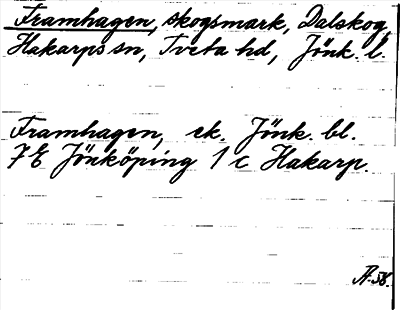 Framhagen, skogsmark, Dalskog,
Hakarps sn, Tveta hd, Jönk. l.
Framhagen, ek. Jönk. bl.
7E Jönköping 1 c Hakarp.
Å-58.